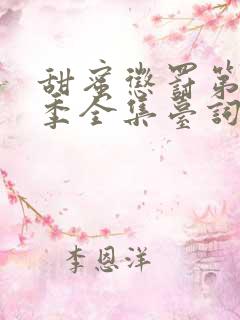 甜蜜懲罰第
季全集臺詞
李恩洋